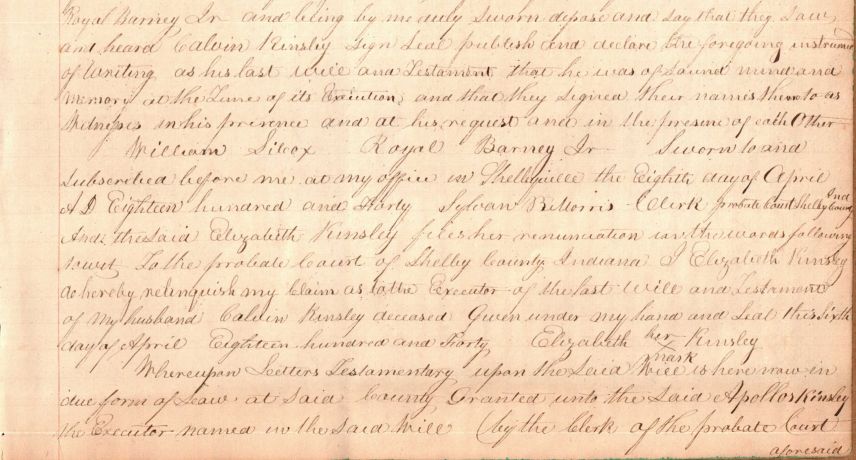 Royal Barney Jr and being by me duly sworn depose and say that they saw
and heard Calvin Kinsley sign seal publish and declare the foregoing instrument
of Writing as his last Will and Testament that he was of sound mind and
memory at the time of its Execution, and that they signed their names thereto as
Witnesses in his presence and at his request and in the presence of each Other
William Silcox Royal Barney Jr Sworn to and
subscribed before me at my office in Shelbyville the Eighth day of April
A D Eighteen hundred and Forty Sylvan B Morris Clerk probate Court Shelby County
Ind
And the said Elizabeth Kinsley files her renunciation in the words following
towit To the probate Court of Shelby County Indiana I Elizabeth Kinsley
do hereby relinquish my Claim as to the Executor of the last Will and Testament
of my husband Calvin Kinsley deceased Given under my hand and seal this Sixth
day of April Eighteen hundred and Forty Elizabeth her x mark Kinsley
Whereupon Letters Testamentary upon the said Will is here now in
due form of Law at said County Granted unto the said Apollos Kinsley
the Executor named in the said Will (by the Clerk of the probate Court
aforesaid